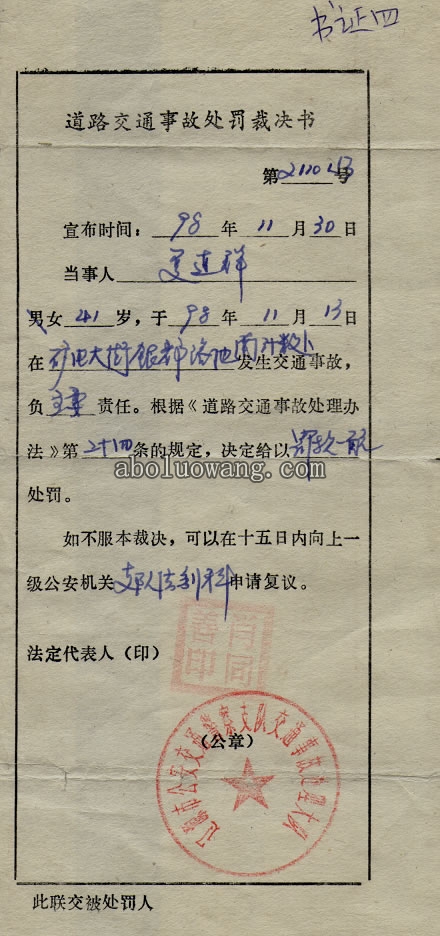 书证四
道路交通事故处罚裁决书
第2110213号
宣布时间：98年11月30日
当事人 连祥
男女41岁，于98年11月13日
在矿电大街银都 发生交通事故，
负主要责任。根据《道路交通事故处理办
法》第二十四条的规定，决定给以罚款一百元
处罚。
aboluowang.com
如不服本裁决，可以在十五日内向上一
级公安机关支队法制科申请复议。
法定代表人（印）
肖同善印
（公章）
市公安交通警察支队交通事故处理大队
此联交被处罚人